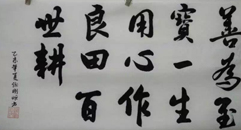 善為至
寶一生
用心作
良田百
世耕